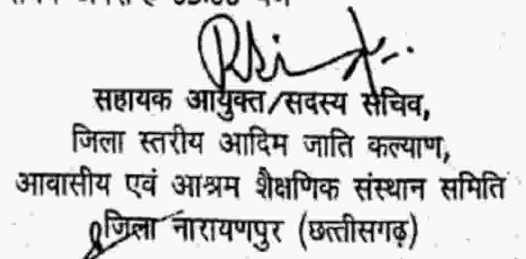 सहायक आयुक्त/सदस्य सचिव,
जिला स्तरीय आदिम जाति कल्याण,
आवासीय एवं आश्रम शैक्षणिक संस्थान समिति
जिला नारायणपुर (छत्तीसगढ़)